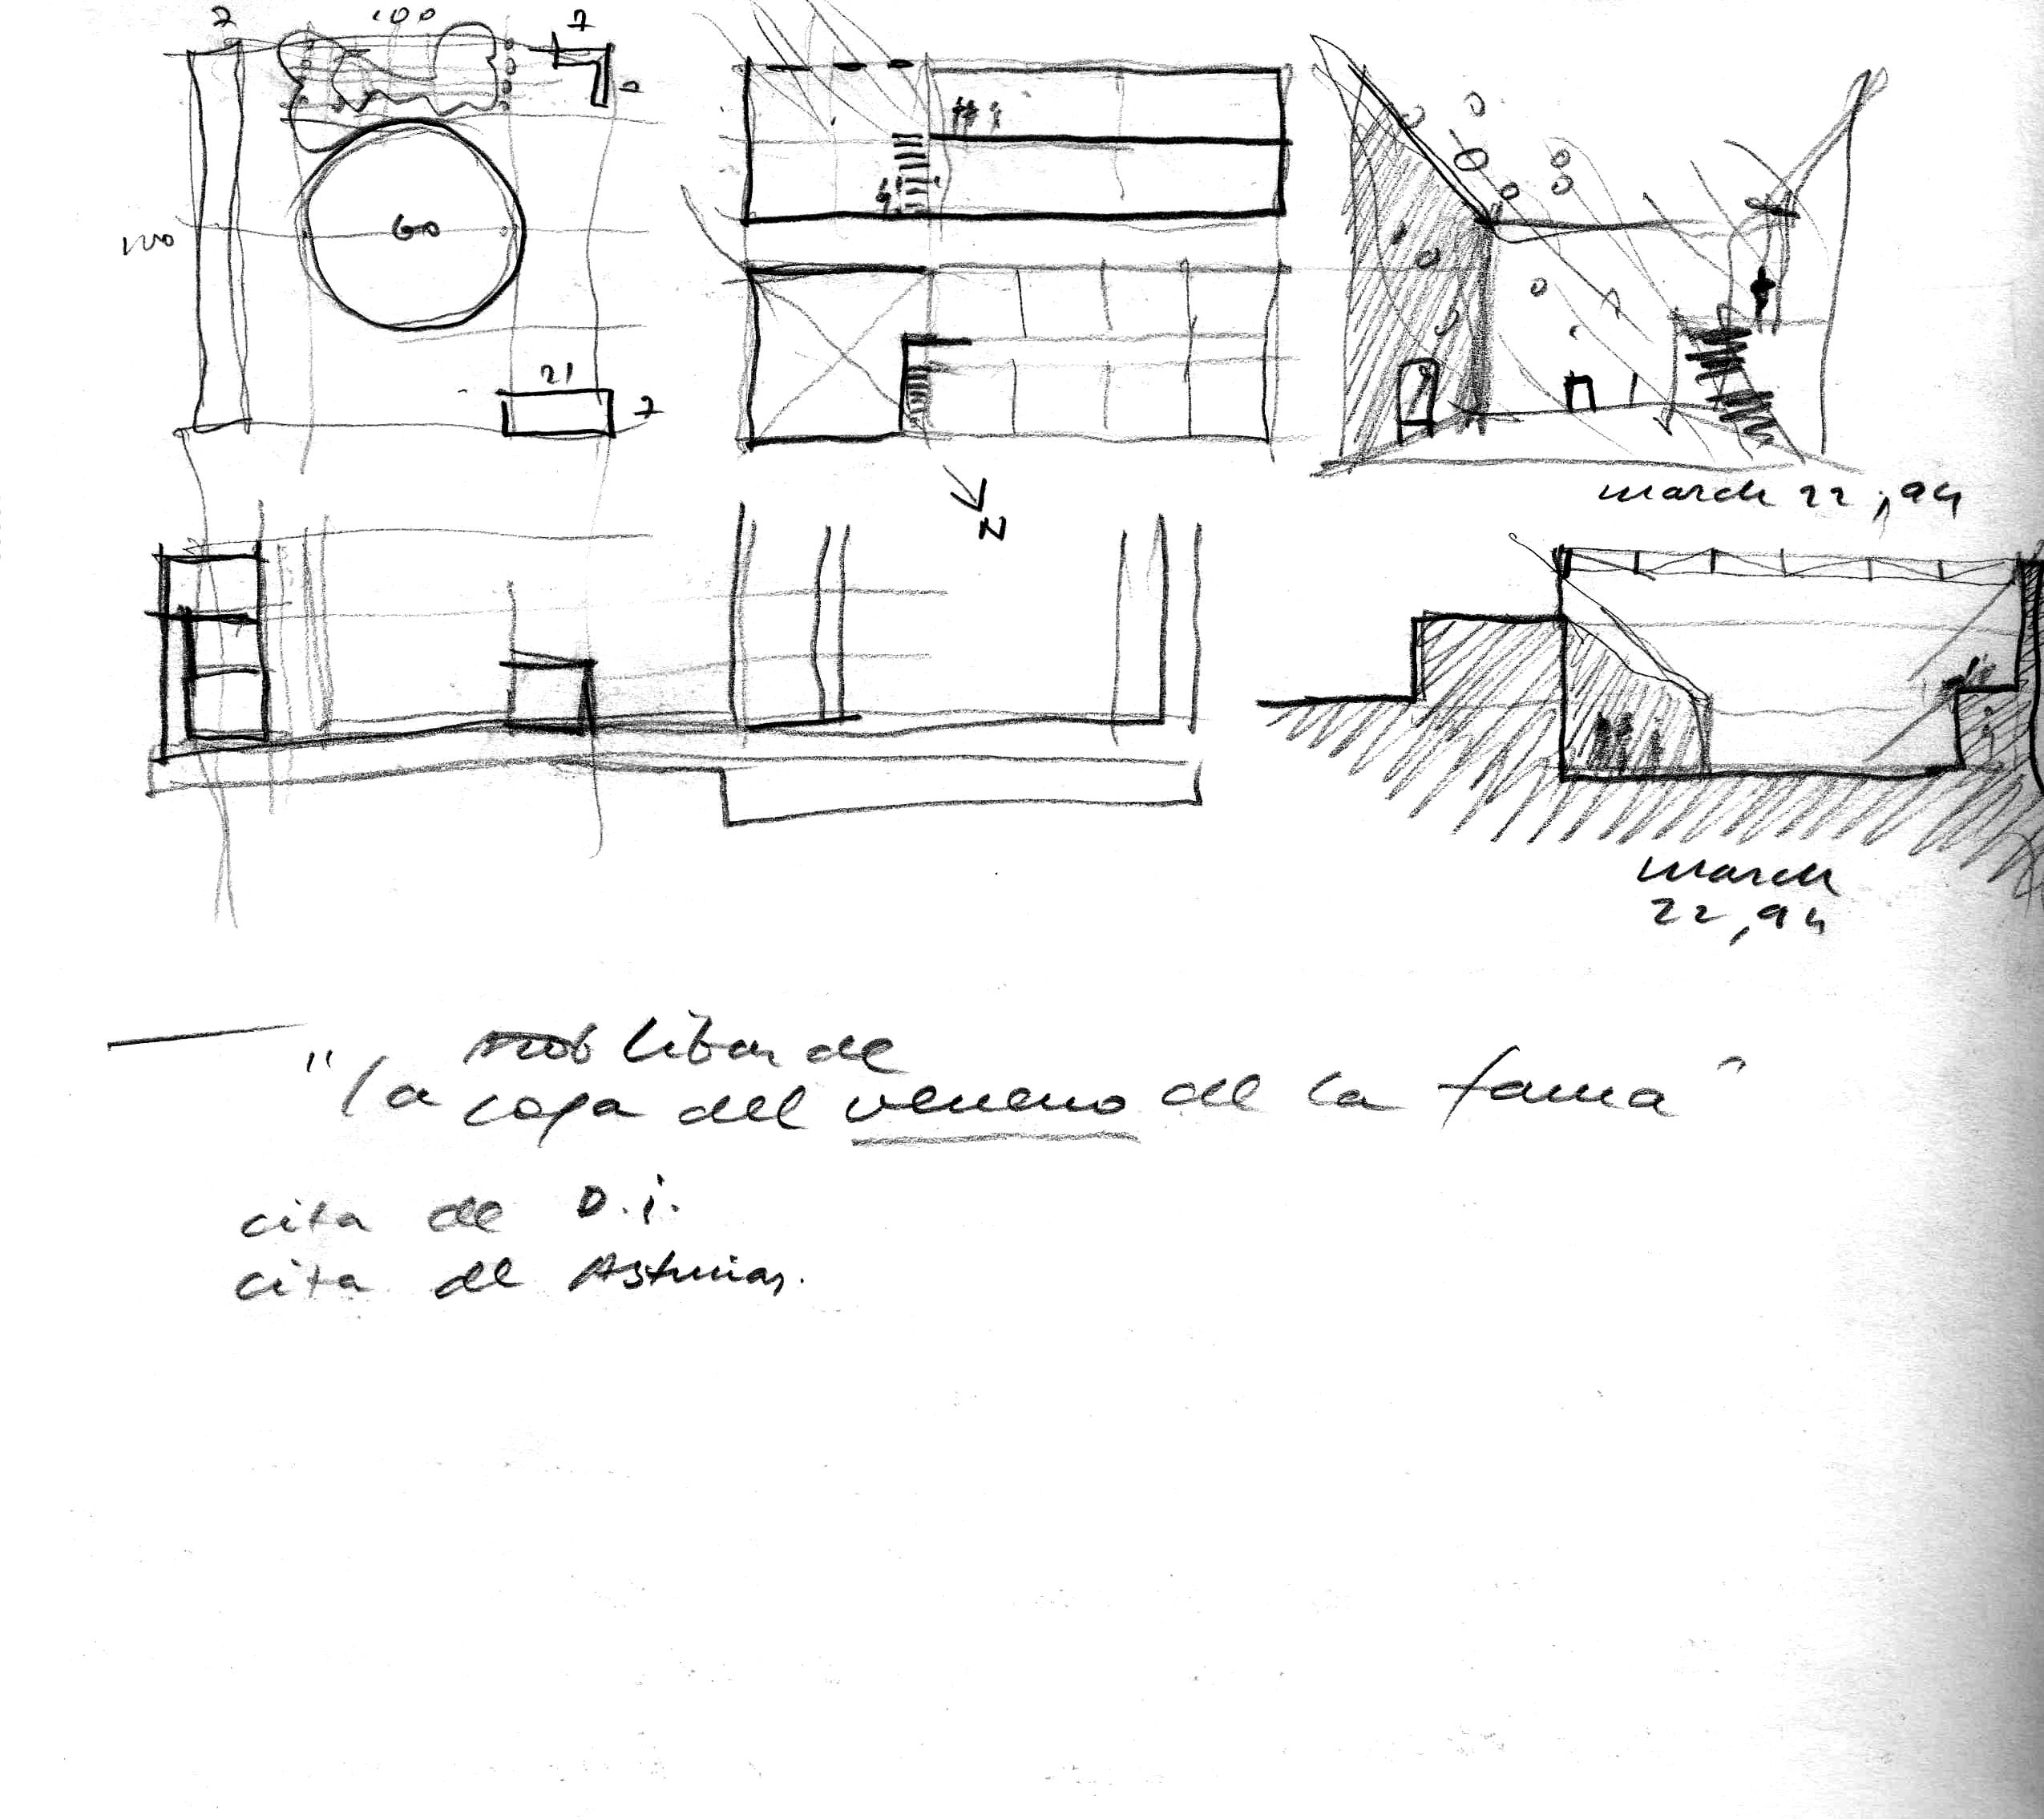 7 100 7
100
60
21
7
N
march 22, 94
march
22, 94
libar de
"la copa del veneno de la fama"
cita de D.i.
cita de Asturias.